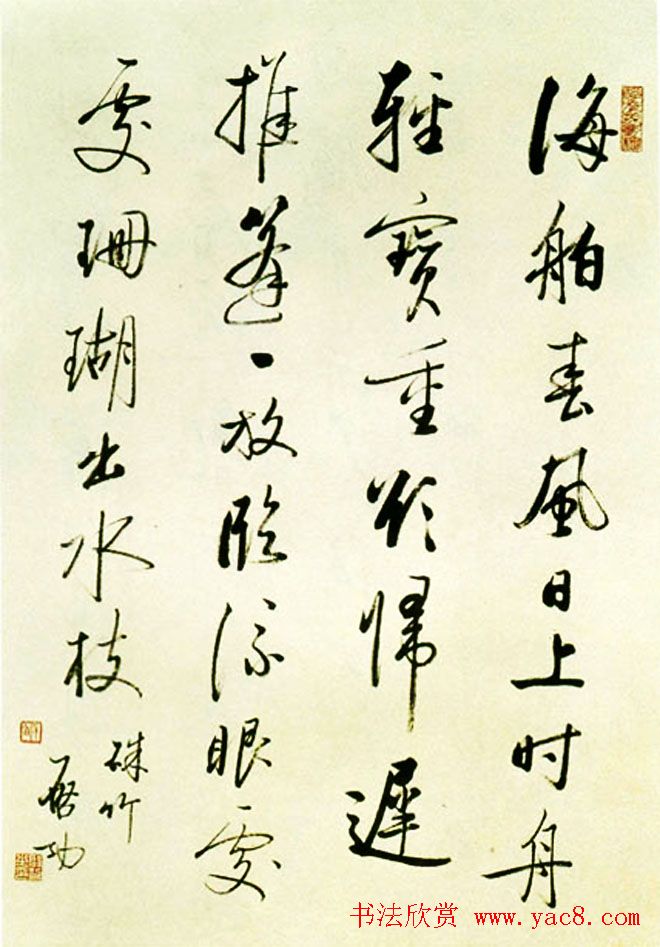 海舶春風日上时舟
輕寶重欲歸遲
推篷一放臨流眼處
處珊瑚出水枝
硃竹
啓功
书法欣赏 www.yac8.com